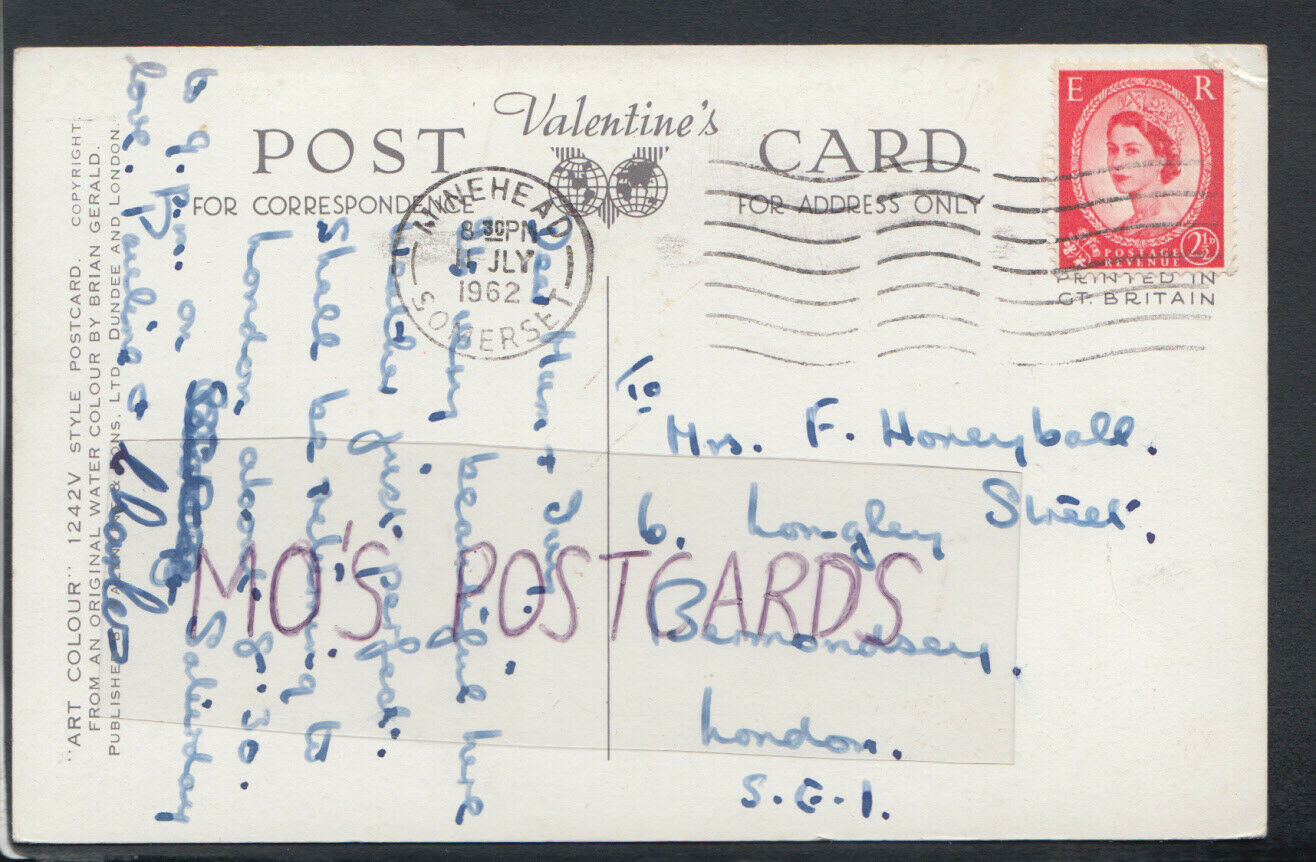 Valentine's
POST CARD
FOR CORRESPONDENCE
FOR ADDRESS ONLY
MINEHEAD
8 30PM
11 JLY
1962
SOMERSET
E R
POSTAGE
REVENUE
2½D
PRINTED IN
GT. BRITAIN
Dear Mam + Jim
very beautiful here
weather just perfect.
Shall be returning to
London about 8.30.
to 9.pm. on Saturday
love. Pauline +
Charles
To
Mrs. F. Honeyball.
6. Longley Street.
Bermondsey.
London.
S.E.1.
MO'S POSTCARDS
"ART COLOUR" 1242V STYLE POSTCARD. COPYRIGHT
FROM AN ORIGINAL WATER COLOUR BY BRIAN GERALD.
PUBLISHED BY VALENTINE & SONS. LTD. DUNDEE AND LONDON.